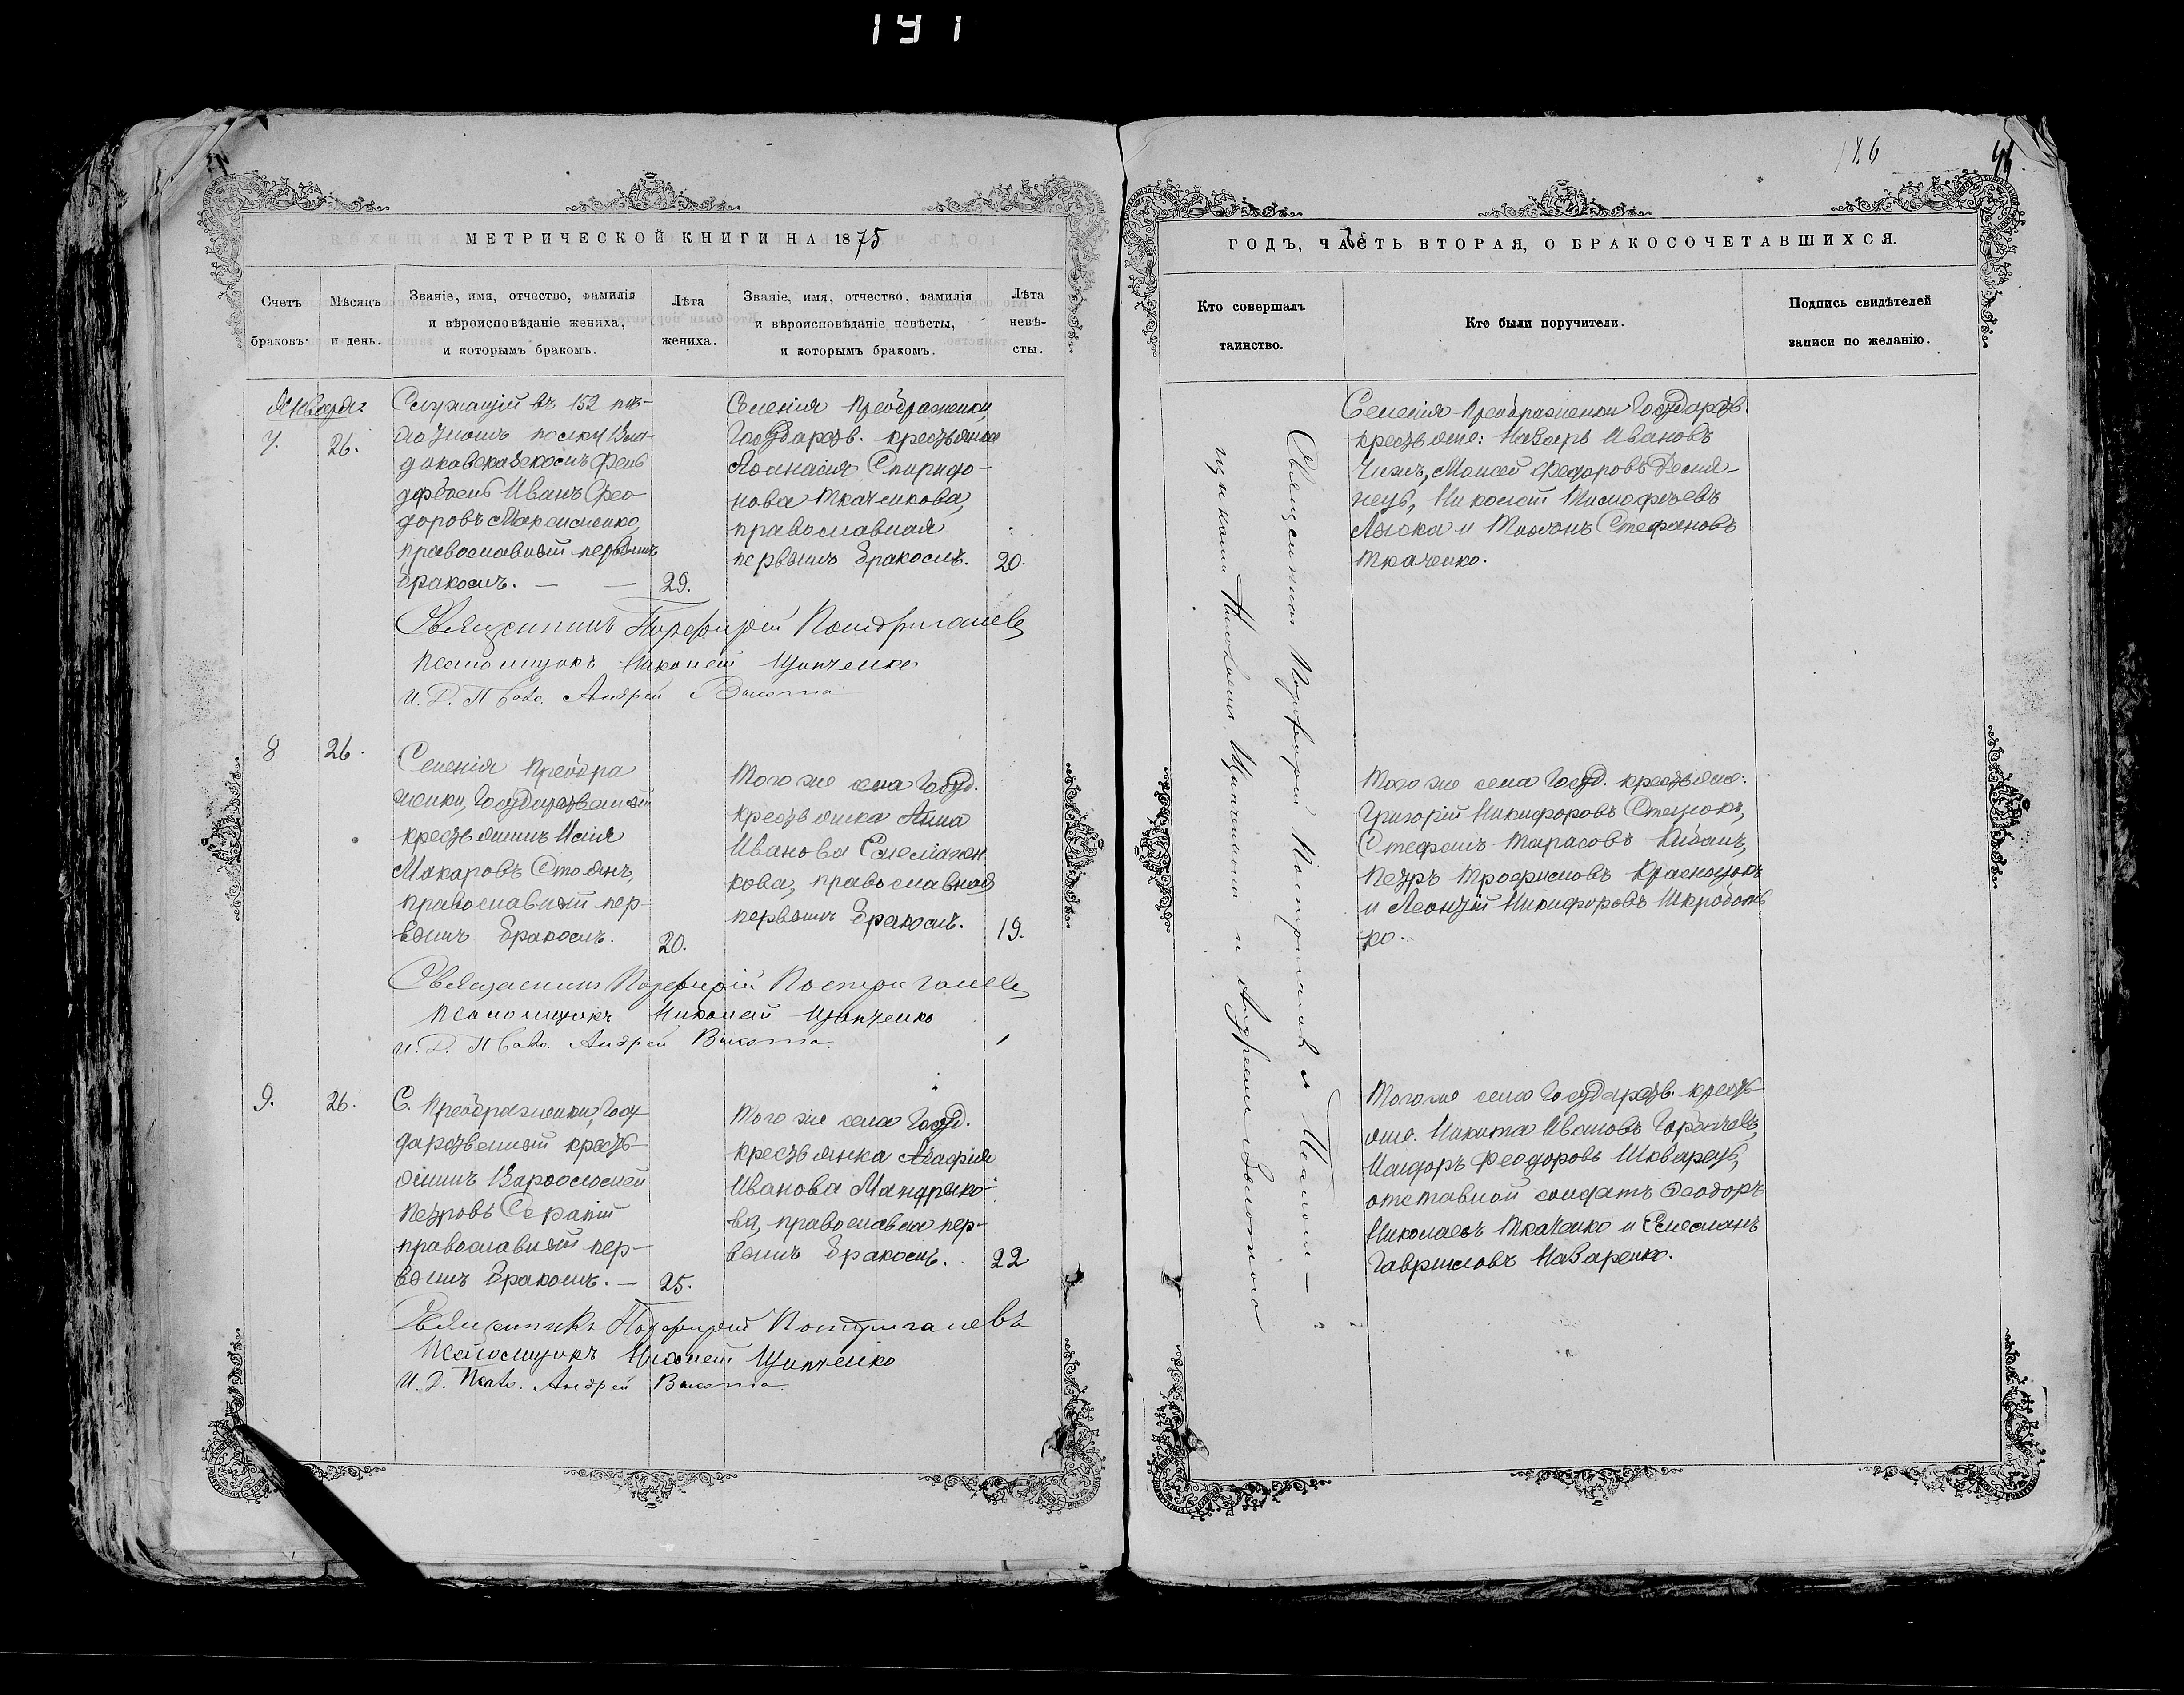 191
МЕТРИЧЕСКОЙ КНИГИ НА 1875
Счетъ браковъ.
Мѣсяцъ и день.
Званіе, имя, отчество, фамилія
и вѣроисповѣданіе жениха,
и которымъ бракомъ.
Лѣта
жениха.
Званіе, имя, отчество, фамилія
и вѣроисповѣданіе невѣсты,
и которымъ бракомъ.
Лѣта
невѣ-
сты.
Января
7.
26.
Служащій въ 152 пѣ-
хотномъ полку Вла-
дикавказскомъ фель
дфебель Иванъ Ѳео-
доровъ Максименко,
православный первымъ
бракомъ. — —
29.
Селенія Преображенки,
Государств. крестьянка
Аѳанасія Спиридо-
нова Ткаченкова,
православная
первымъ бракомъ.
20.
Священникъ Порфирій Постригачевъ
Псаломщикъ Николай Щипченко
И. Д. Псало. Андрей Высота
8
26.
Селенія Преобра
женки, Государственный
крестьянинъ Илія
Макаровъ Стоянъ,
православный пер-
вымъ бракомъ.
20.
Того же села Госуд.
крестьянка Анна
Иванова
кова, православная
первымъ бракомъ.
19.
Священникъ Порфирій Постригачевъ
Псаломщикъ Николай Щипченко
И. Д. Псало. Андрей Высота
9.
26.
С. Преображенки, Госу
дарственный кресть-
янинъ Варѳоломей
Петровъ
православный пер-
вымъ бракомъ. —
25.
Того же села Госуд.
крестьянка Агафія
Иванова Мандрыко-
ва, православная пер-
вымъ бракомъ.
22
Священникъ Порфирій Постригачевъ
Псаломщикъ Николай Щипченко
И. Д. Псало. Андрей Высота
186
ГОДЪ, ЧАСТЬ ВТОРАЯ, О БРАКОСОЧЕТАВШИХСЯ.
Кто совершалъ
таинство.
Кто были поручители.
Подпись свидѣтелей
записи по желанію.
Священникъ Порфирій Постригачевъ съ Псалом-
щиками Николаемъ Щипченкомъ и Андреемъ Высотою
Селенія Преображенки Государств.
крестьяне: Назаръ Ивановъ
Чижъ, Моисей Ѳедоровъ
Николай Тимофѣевъ
Лыска и Стефановъ
Ткаченко.
Того же села Госуд. крестьяне:
Григорій Никифоровъ Стецюкъ,
Стефанъ Тарасовъ
Петръ Трофимовъ
и Леонтій Никифоровъ Шкробот
ко.
Того же села Государств. кресть-
яне. Никита Ивановъ Горбачевъ,
Исидоръ Ѳеодоровъ Шкварецъ,
отставной солдатъ Ѳеодоръ
Николаевъ Ткаченко и Емеліанъ
Гавриловъ Назаренко.